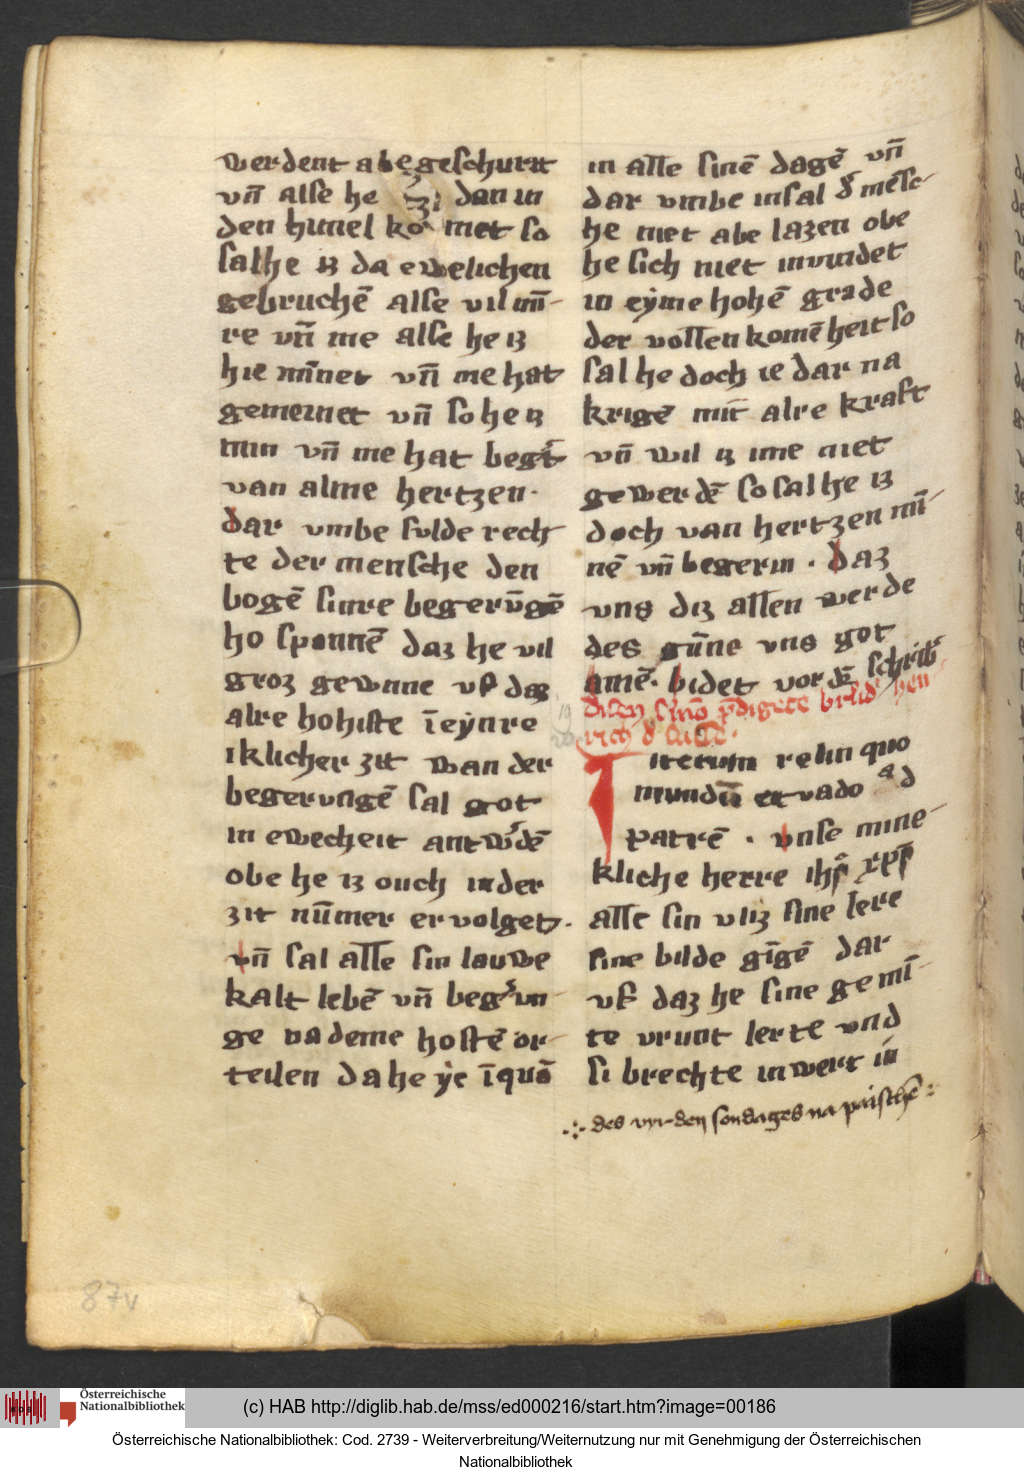 werdent abegeschurtt
vn̄ alse he ... dan in
den himel ko met so
sal he iz da ewelichen
gebruchē alse vil mī-
re vn̄ me alse he iz
hie mīnet vn̄ me hat
gemeinet vn̄ so he iz
min vn̄ me hat begt
van alme hertzen·
dar vmbe sulde rech
te der mensche den
bogē sinre begerūgē
ho spannē daz he vil
groz gewinne vf daz
alre hohiste ī eynre
iklicher zit wan der
begervngē sal got
in ewecheit antwdē
obe he iz ouch in der
zit nūmer ervolget·
vn̄ sal alle sin lauwe
kalt lebē vn̄ begvn-
ge na deme hostē or-
teilen da he yc ī quō
in alle sinē dagē vn̄
dar vmbe insal d mēsc-
he niet abe lazen obe
he sich niet invindet
in eyme hohē grade
der vollen komē heit so
sal he doch ie dar na
krigē mit alre kraft
vn̄ wil iz ime niet
gewerdē so sal he iz
doch van hertzen mī-
nē vn̄ begerin · daz
vns diz allen werde
des gūne vns got
amē· bidet vor dē schrib
disen sinō pdigete brud hen
rich d
Iterum relin quo
mundū et vado ad
Patrē · vnse mine-
kliche herre ihs xps
alse sin vliz sine lere
sine bilde gīgē dar
vf daz he sine gemī-
te vrunt lerte vnd
si brechte in wert in
·:· des vyr den sondages na paischē :
87v
Österreichische
Nationalbibliothek
(c) HAB http://diglib.hab.de/mss/ed000216/start.htm?image=00186
Österreichische Nationalbibliothek: Cod. 2739 - Weiterverbreitung/Weiternutzung nur mit Genehmigung der Österreichischen
Nationalbibliothek